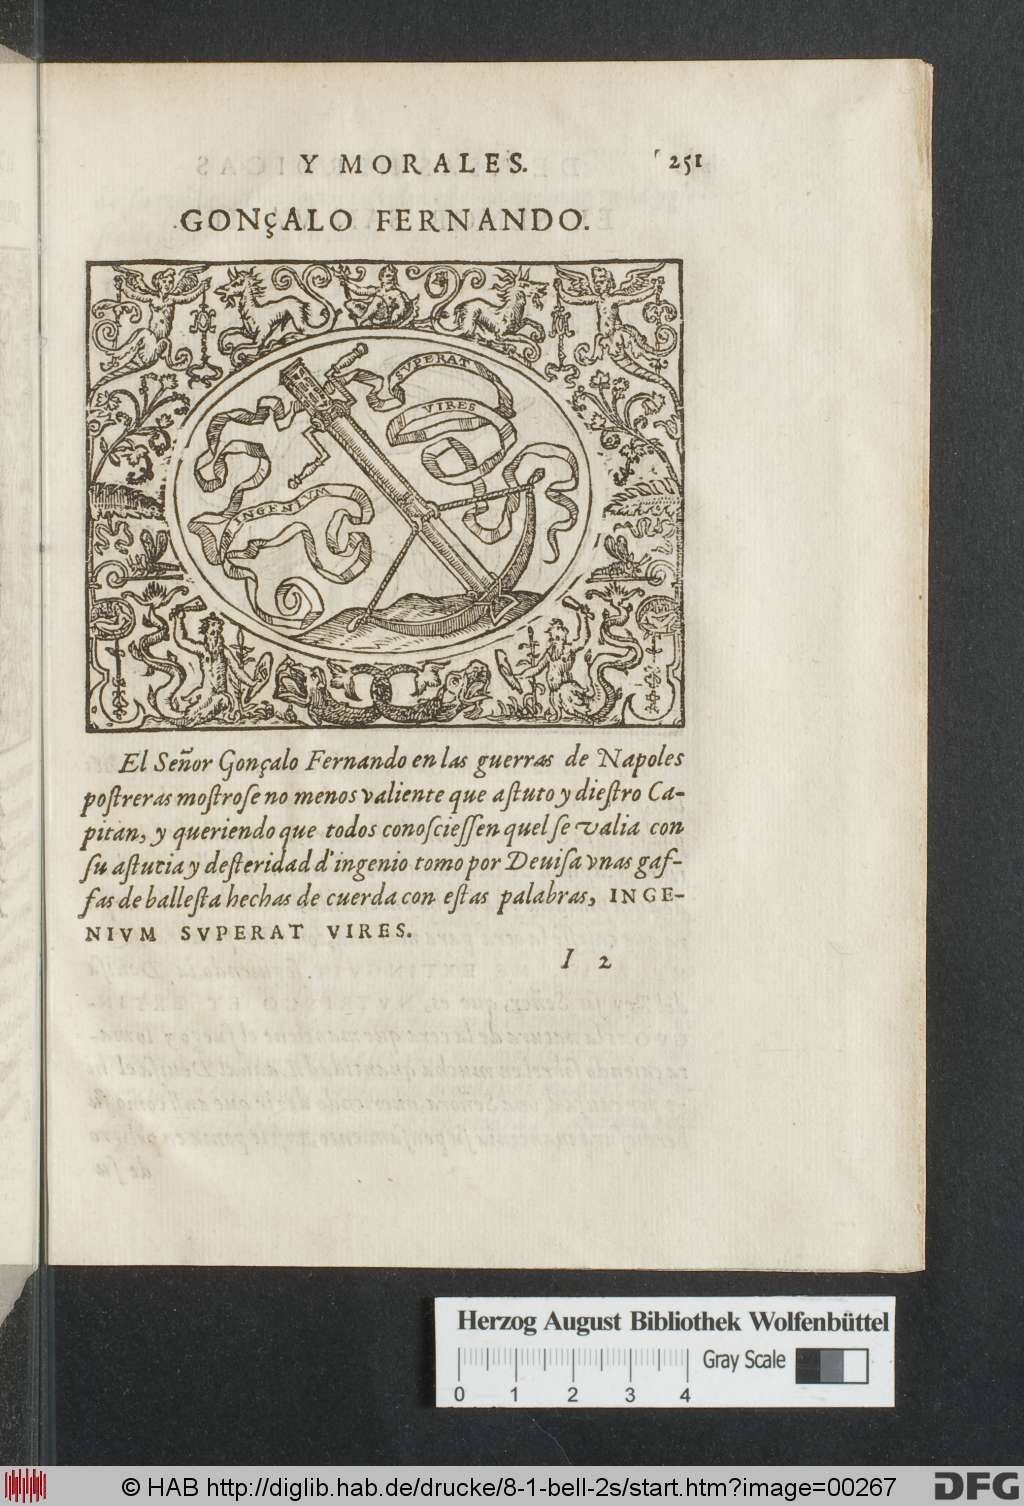 Y MORALES.
251
GONÇALO FERNANDO.
SVPERAT
VIRES
INGENIVM
El Señor Gonçalo Fernando en las guerras de Napoles
poſtreras moſtroſe no menos valiente que aſtuto y dieſtro Ca-
pitan, y queriendo que todos conoſcieſſen quel ſe valia con
ſu aſtutia y deſteridad d'ingenio tomo por Deuiſa vnas gaf-
fas de balleſta hechas de cuerda con eſtas palabras, INGE-
NIVM SVPERAT VIRES.
I 2
Herzog August Bibliothek Wolfenbüttel
Gray Scale
0 1 2 3 4
© HAB http://diglib.hab.de/drucke/8-1-bell-2s/start.htm?image=00267
DFG